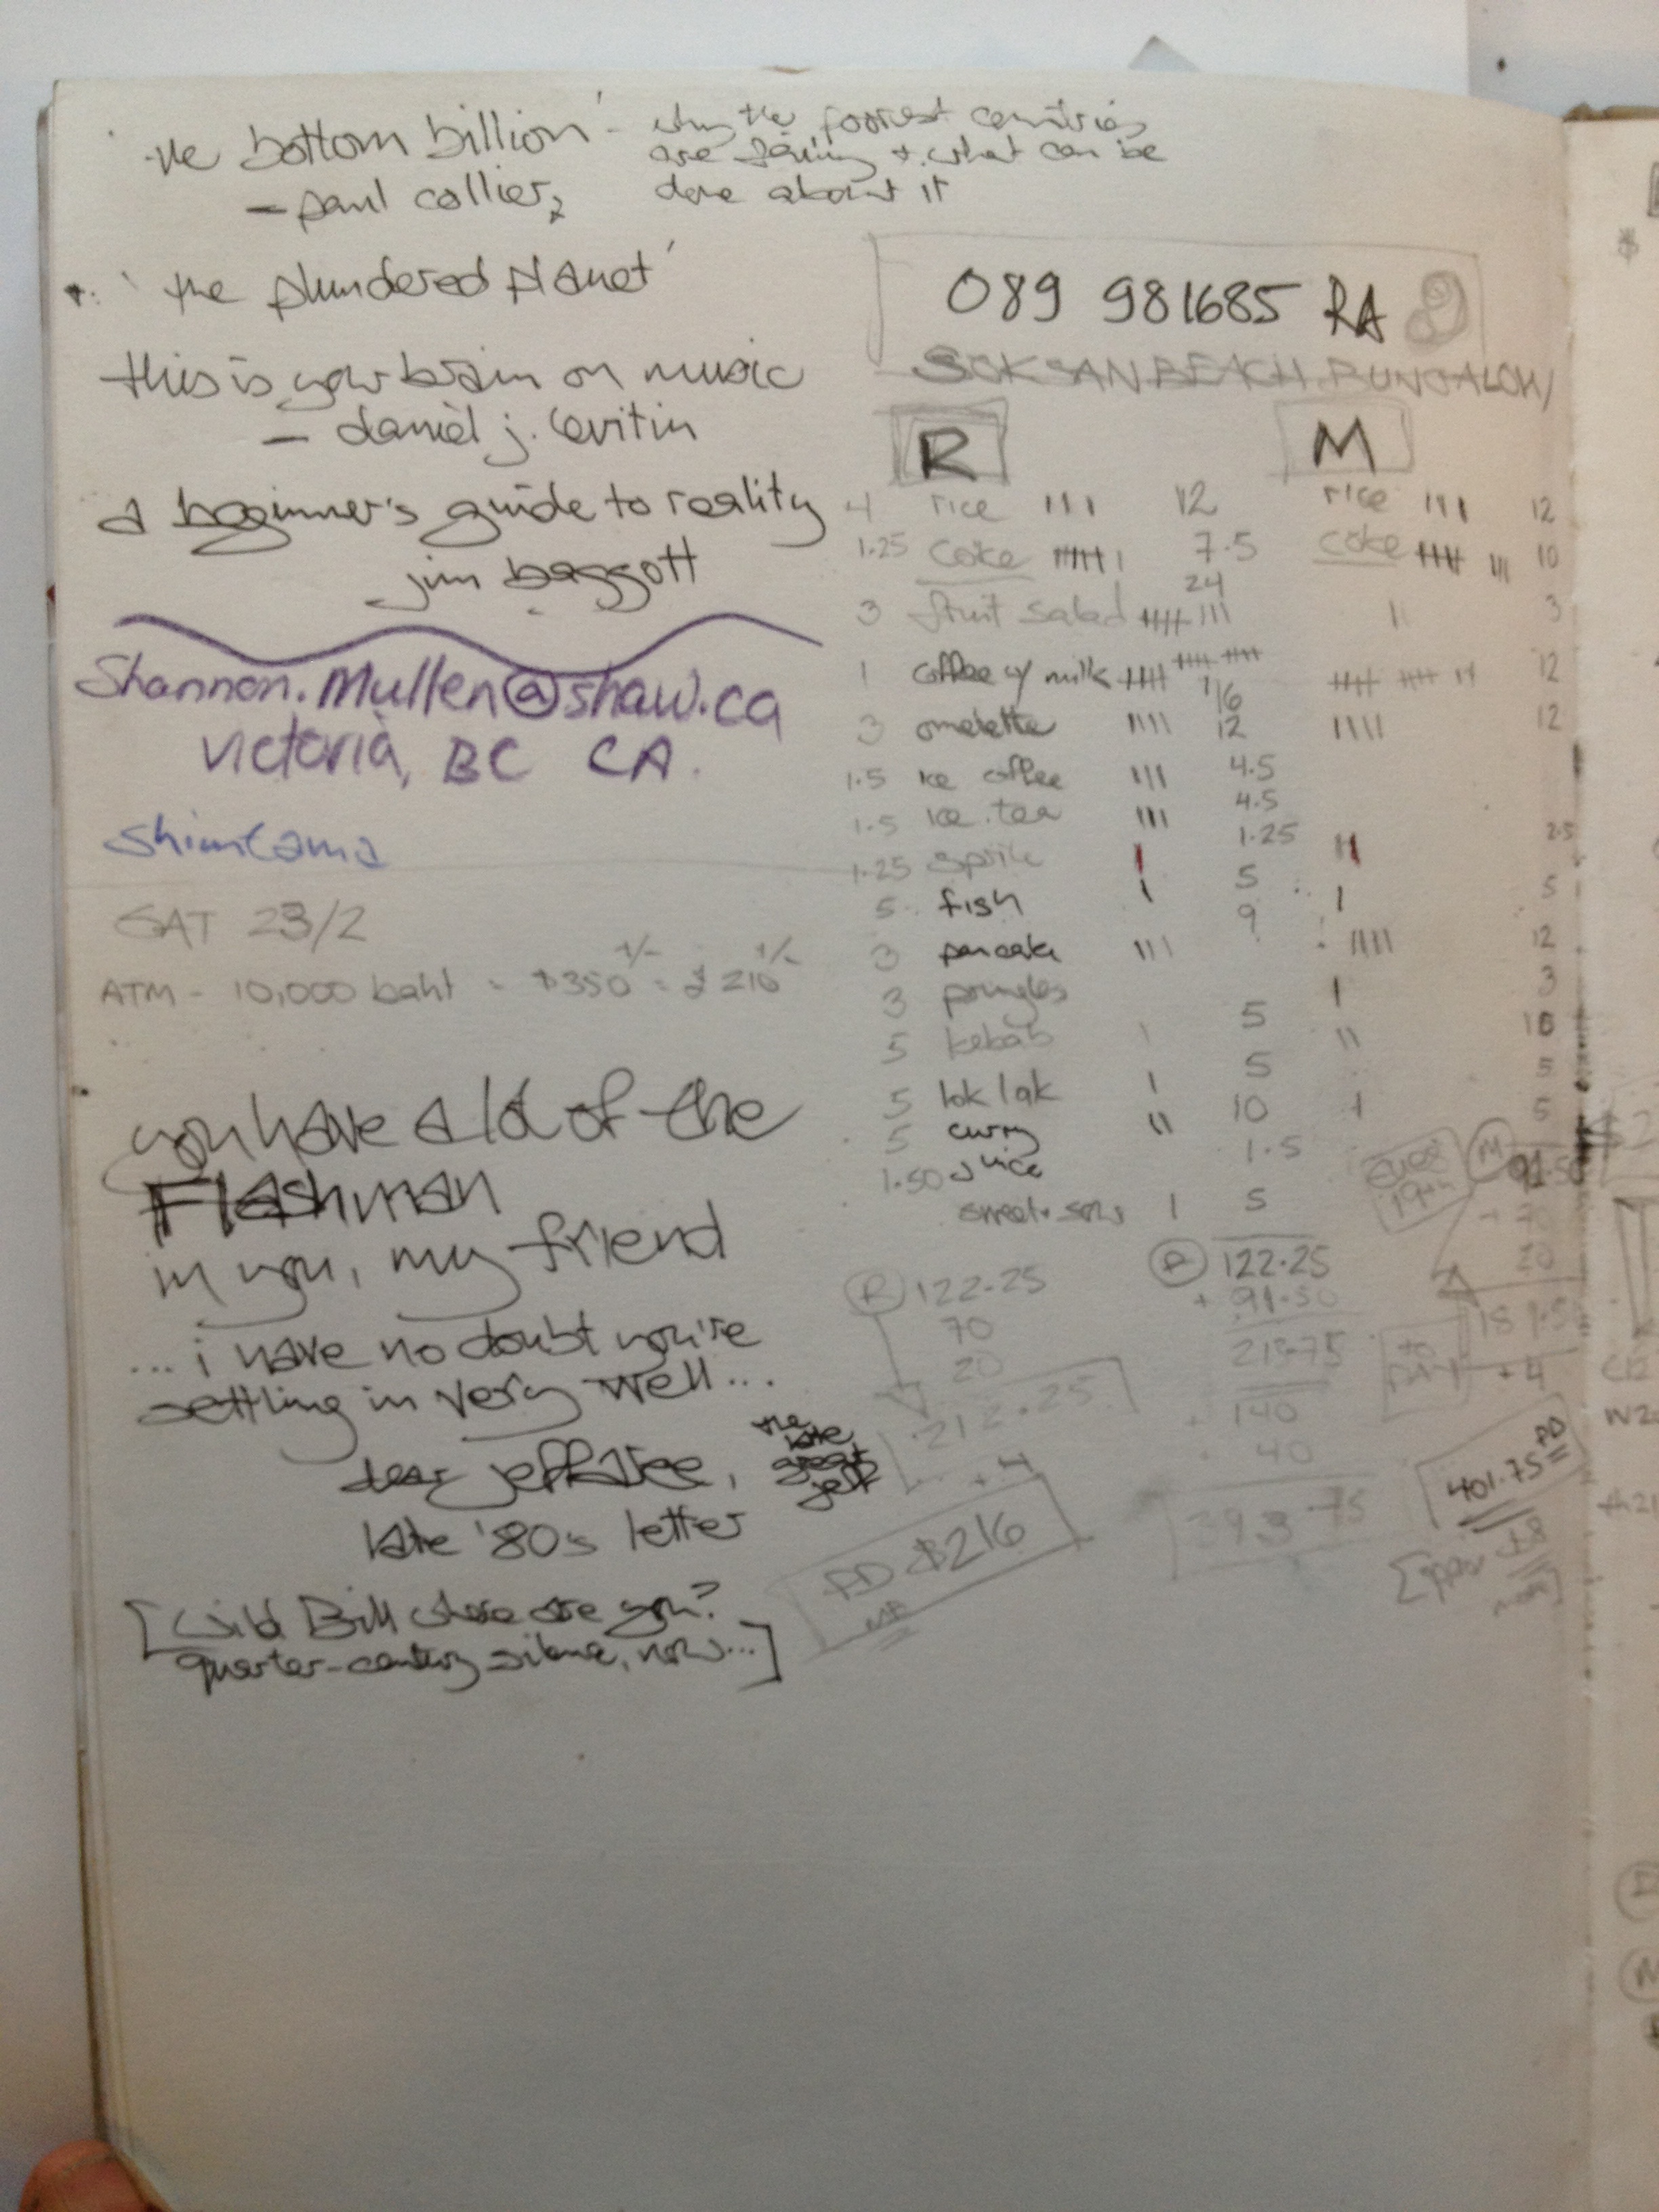 'the bottom billion' - why the poorest countries
are failing + what can be
done about it
- paul collier,
'the plundered planet'
this is your brain on music
- daniel j. levitin
a beginner's guide to reality
jim baggott
Shannon.Mullen@shaw.ca
Victoria, BC CA.
SAT 23/2
ATM - 10,000 baht = $350 +/- = £ 210 +/-
you have a lot of the
Flashman
in you, my friend
... i have no doubt you're
settling in very well...
dear jeffaree, the late great jeff
late '80s letter
[Wild Bill where are you?
quarter-century silence, now...]
089 981685 RA
SOKSAN BEACH BUNGALOW
R M
4 rice III 12 rice III 12
1.25 coke IIIII I 7.5 coke IIIII III 10
3 fruit salad IIIII III 24 II 3
1 coffee w/ milk IIIII IIIII IIIII I 16 IIIII IIIII II 12
3 omelette IIII 12 IIII 12
1.5 ice coffee III 4.5
1.5 ice tea III 4.5
1.25 sprite I 1.25 II 2.5
5 fish I 5 I 5
3 pancake III 9 IIII 12
3 pringles I 3
5 kebab I 5 II 10
5 lok lak I 5 5
5 curry II 10 I 5
1.50 juice 1.5
sweet + sour I 5
M 91.50
20
R 122.25
+ 91.50
213.75
140
40
393.75
R 122.25
70
20
212.25
+ 4
PD $216
+ 4
401.75 PD